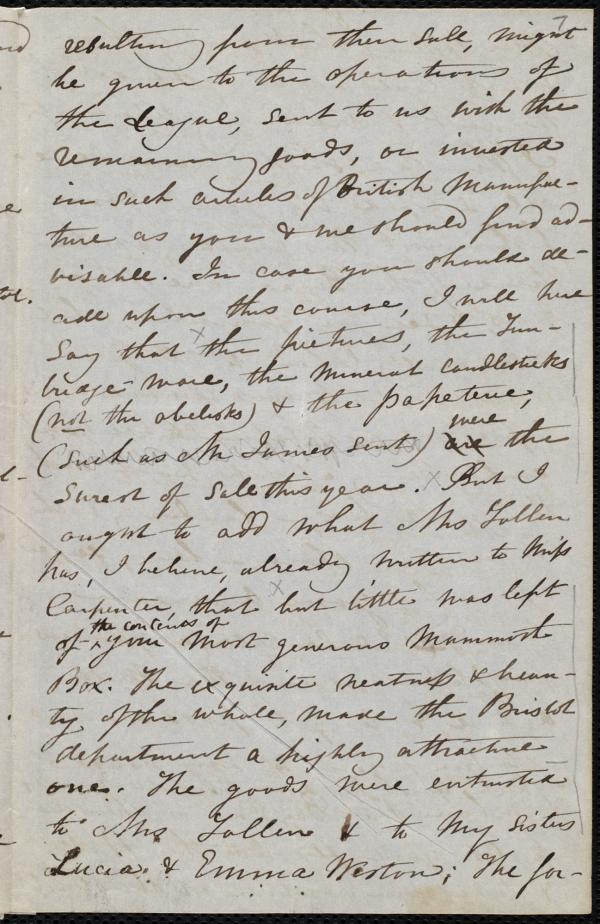 7
resulting from their sale, might
be given to the operations of
the League, sent to us with the
remaining goods, or invested
in such articles of British Manufac-
ture as you & we should find ad-
visable. In case you should de-
cide upon this course, I will here
say that the pictures, the Tun-
bridge-ware, the mineral candlesticks
(not the obelisks) & the papeterie,
(such as Mr James sent) were the
surest of sale this year. But I
ought to add what Mrs Follen
has, I believe, already written to Miss
Carpenter, that but little was left
of the contents of your most generous Mammoth
Box. The exquisite neatness & beau-
ty of the whole, made the Bristol
department a highly attractive
one. The goods were entrusted
to Mrs Follen & to my sisters
Lucia & Emma Weston; The for-